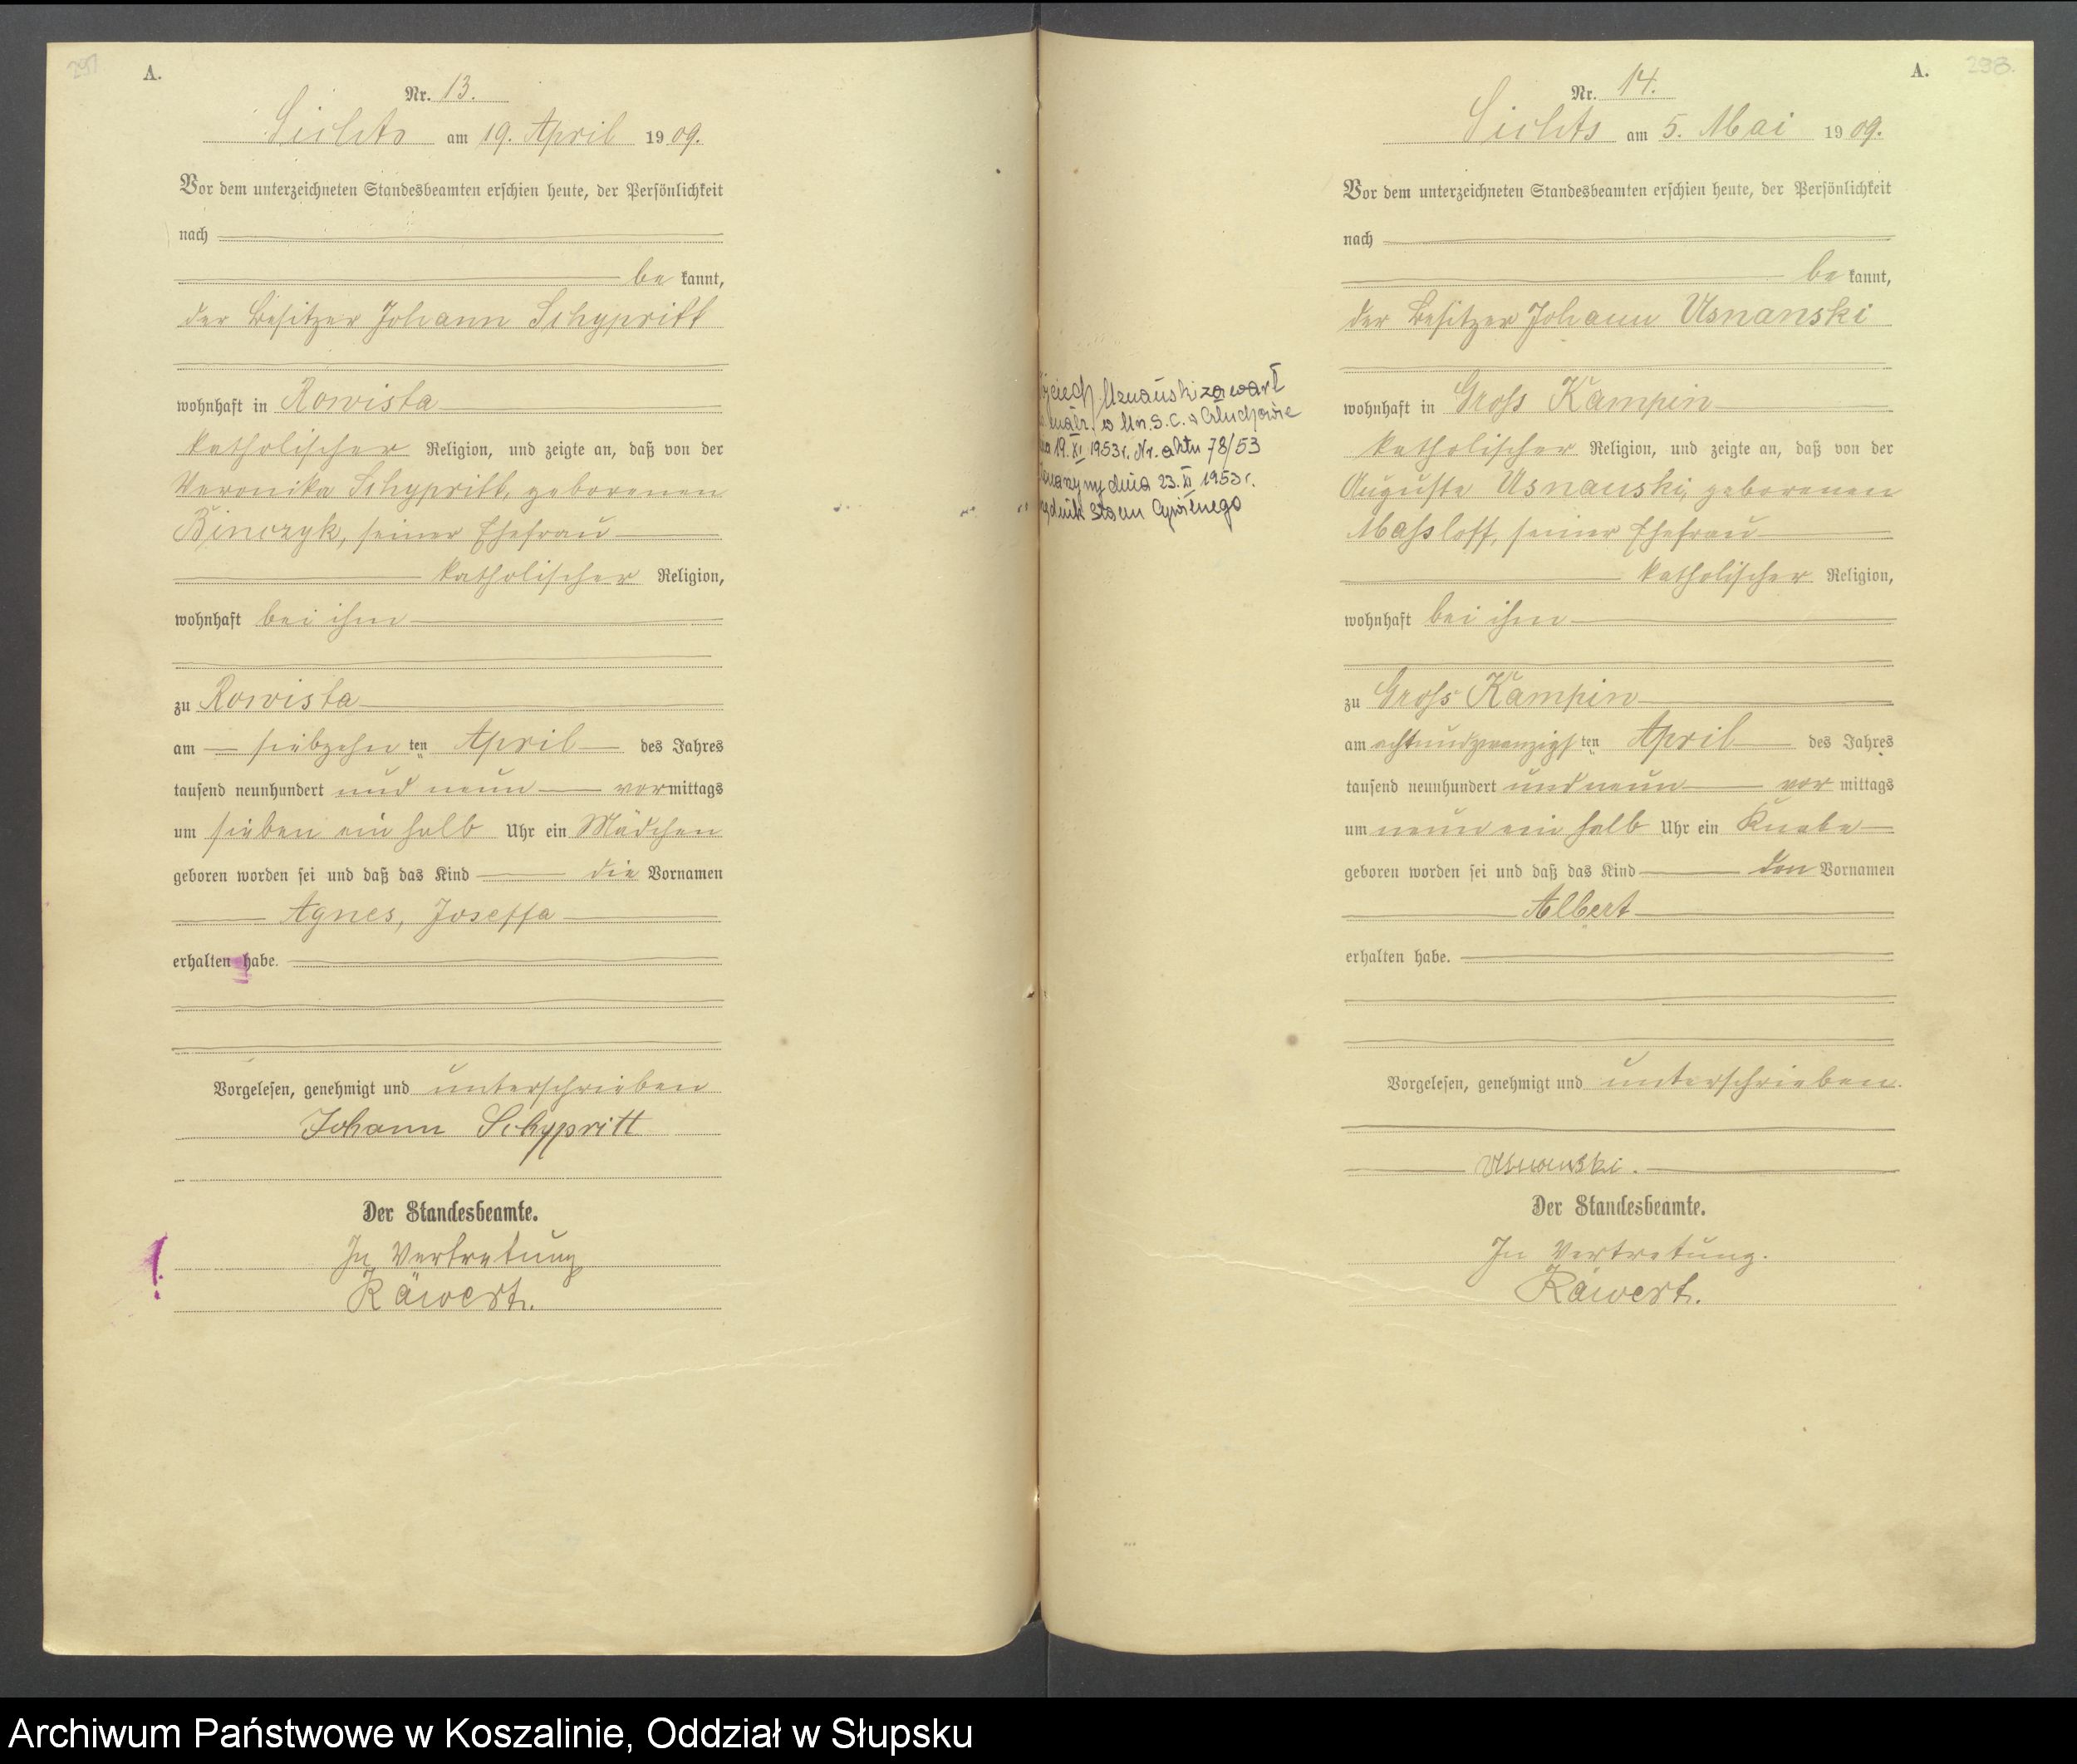 297
A.
Nr. 13.
Lichts am 19. April 1909.
Vor dem unterzeichneten Standesbeamten erschien heute, der Persönlichkeit
nach
be kannt,
der Besitzer Johann Schypritt
wohnhaft in Rowista
katholischer Religion, und zeigte an, daß von der
Veronika Schypritt, geborenen
Binczyk, seiner Ehefrau
katholischer Religion,
wohnhaft bei ihm
zu Rowista
am siebzehn ten April des Jahres
tausend neunhundert und neun vormittags
um sieben ein halb Uhr ein Mädchen
geboren worden sei und daß das Kind die Vornamen
Agnes, Joseffa
erhalten habe.
Vorgelesen, genehmigt und unterschrieben
Johann Schypritt
Der Standesbeamte.
In Vertretung
Räwert.
A.
298.
Nr. 14.
Lichts am 5. Mai 1909.
Vor dem unterzeichneten Standesbeamten erschien heute, der Persönlichkeit
nach
be kannt,
der Besitzer Johann Usnanski
wohnhaft in Gross Kampin
katholischer Religion, und zeigte an, daß von der
Auguste Usnanski, geborenen
Massloff, seiner Ehefrau
katholischer Religion,
wohnhaft bei ihm
zu Gross Kampin
am achtundzwanzigsten April des Jahres
tausend neunhundert und neun vor mittags
um neun ein halb Uhr ein Knabe
geboren worden sei und daß das Kind den Vornamen
Albert
erhalten habe.
Vorgelesen, genehmigt und unterschrieben.
Usnanski.
Der Standesbeamte.
In Vertretung.
Räwert.
Uznański zawarł
w U.S.C. w Człuchowie
19. XI 1953 r. Nr. aktu 78/53
dnia 23. XI 1953 r.
Stanu Cywilnego
Archiwum Państwowe w Koszalinie, Oddział w Słupsku